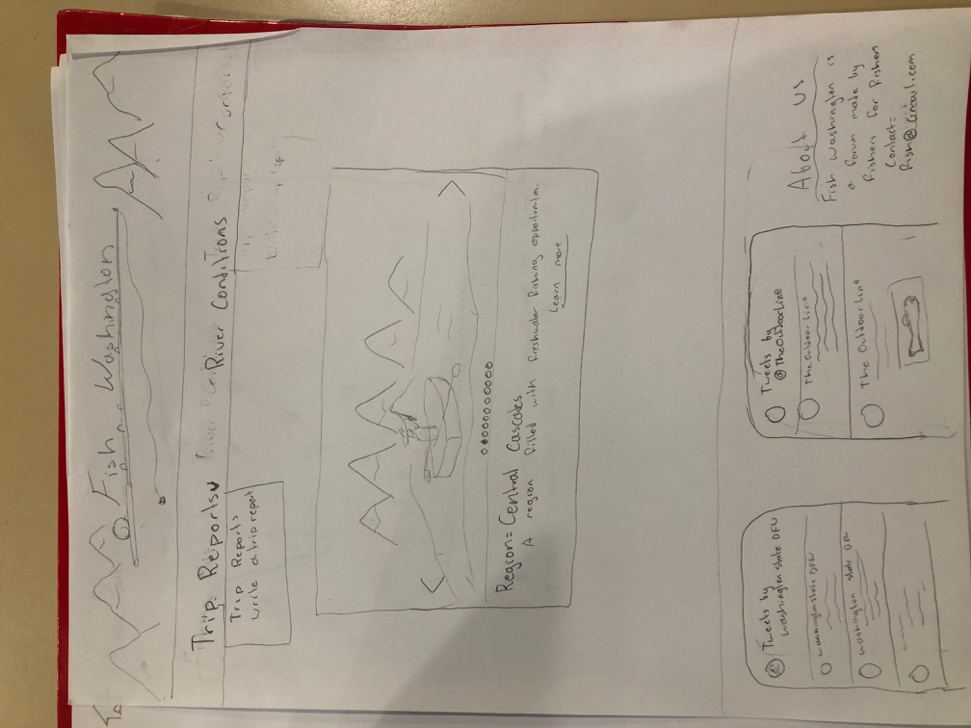 Fish Washington
Trip Reports
River Conditions
Trip Reports
write a trip report
Region= Central Cascades
A region filled with freshwater fishing opportunities.
Learn more
Tweets by
Washington State DFW
Washington State DFW
Washington State DFW
Tweets by
@TheOutdoorLine
The Outdoor Line
The Outdoor Line
About us
Fish Washington is
a forum made by
fishers for fishers
Contact=
Fish@Gmail.com